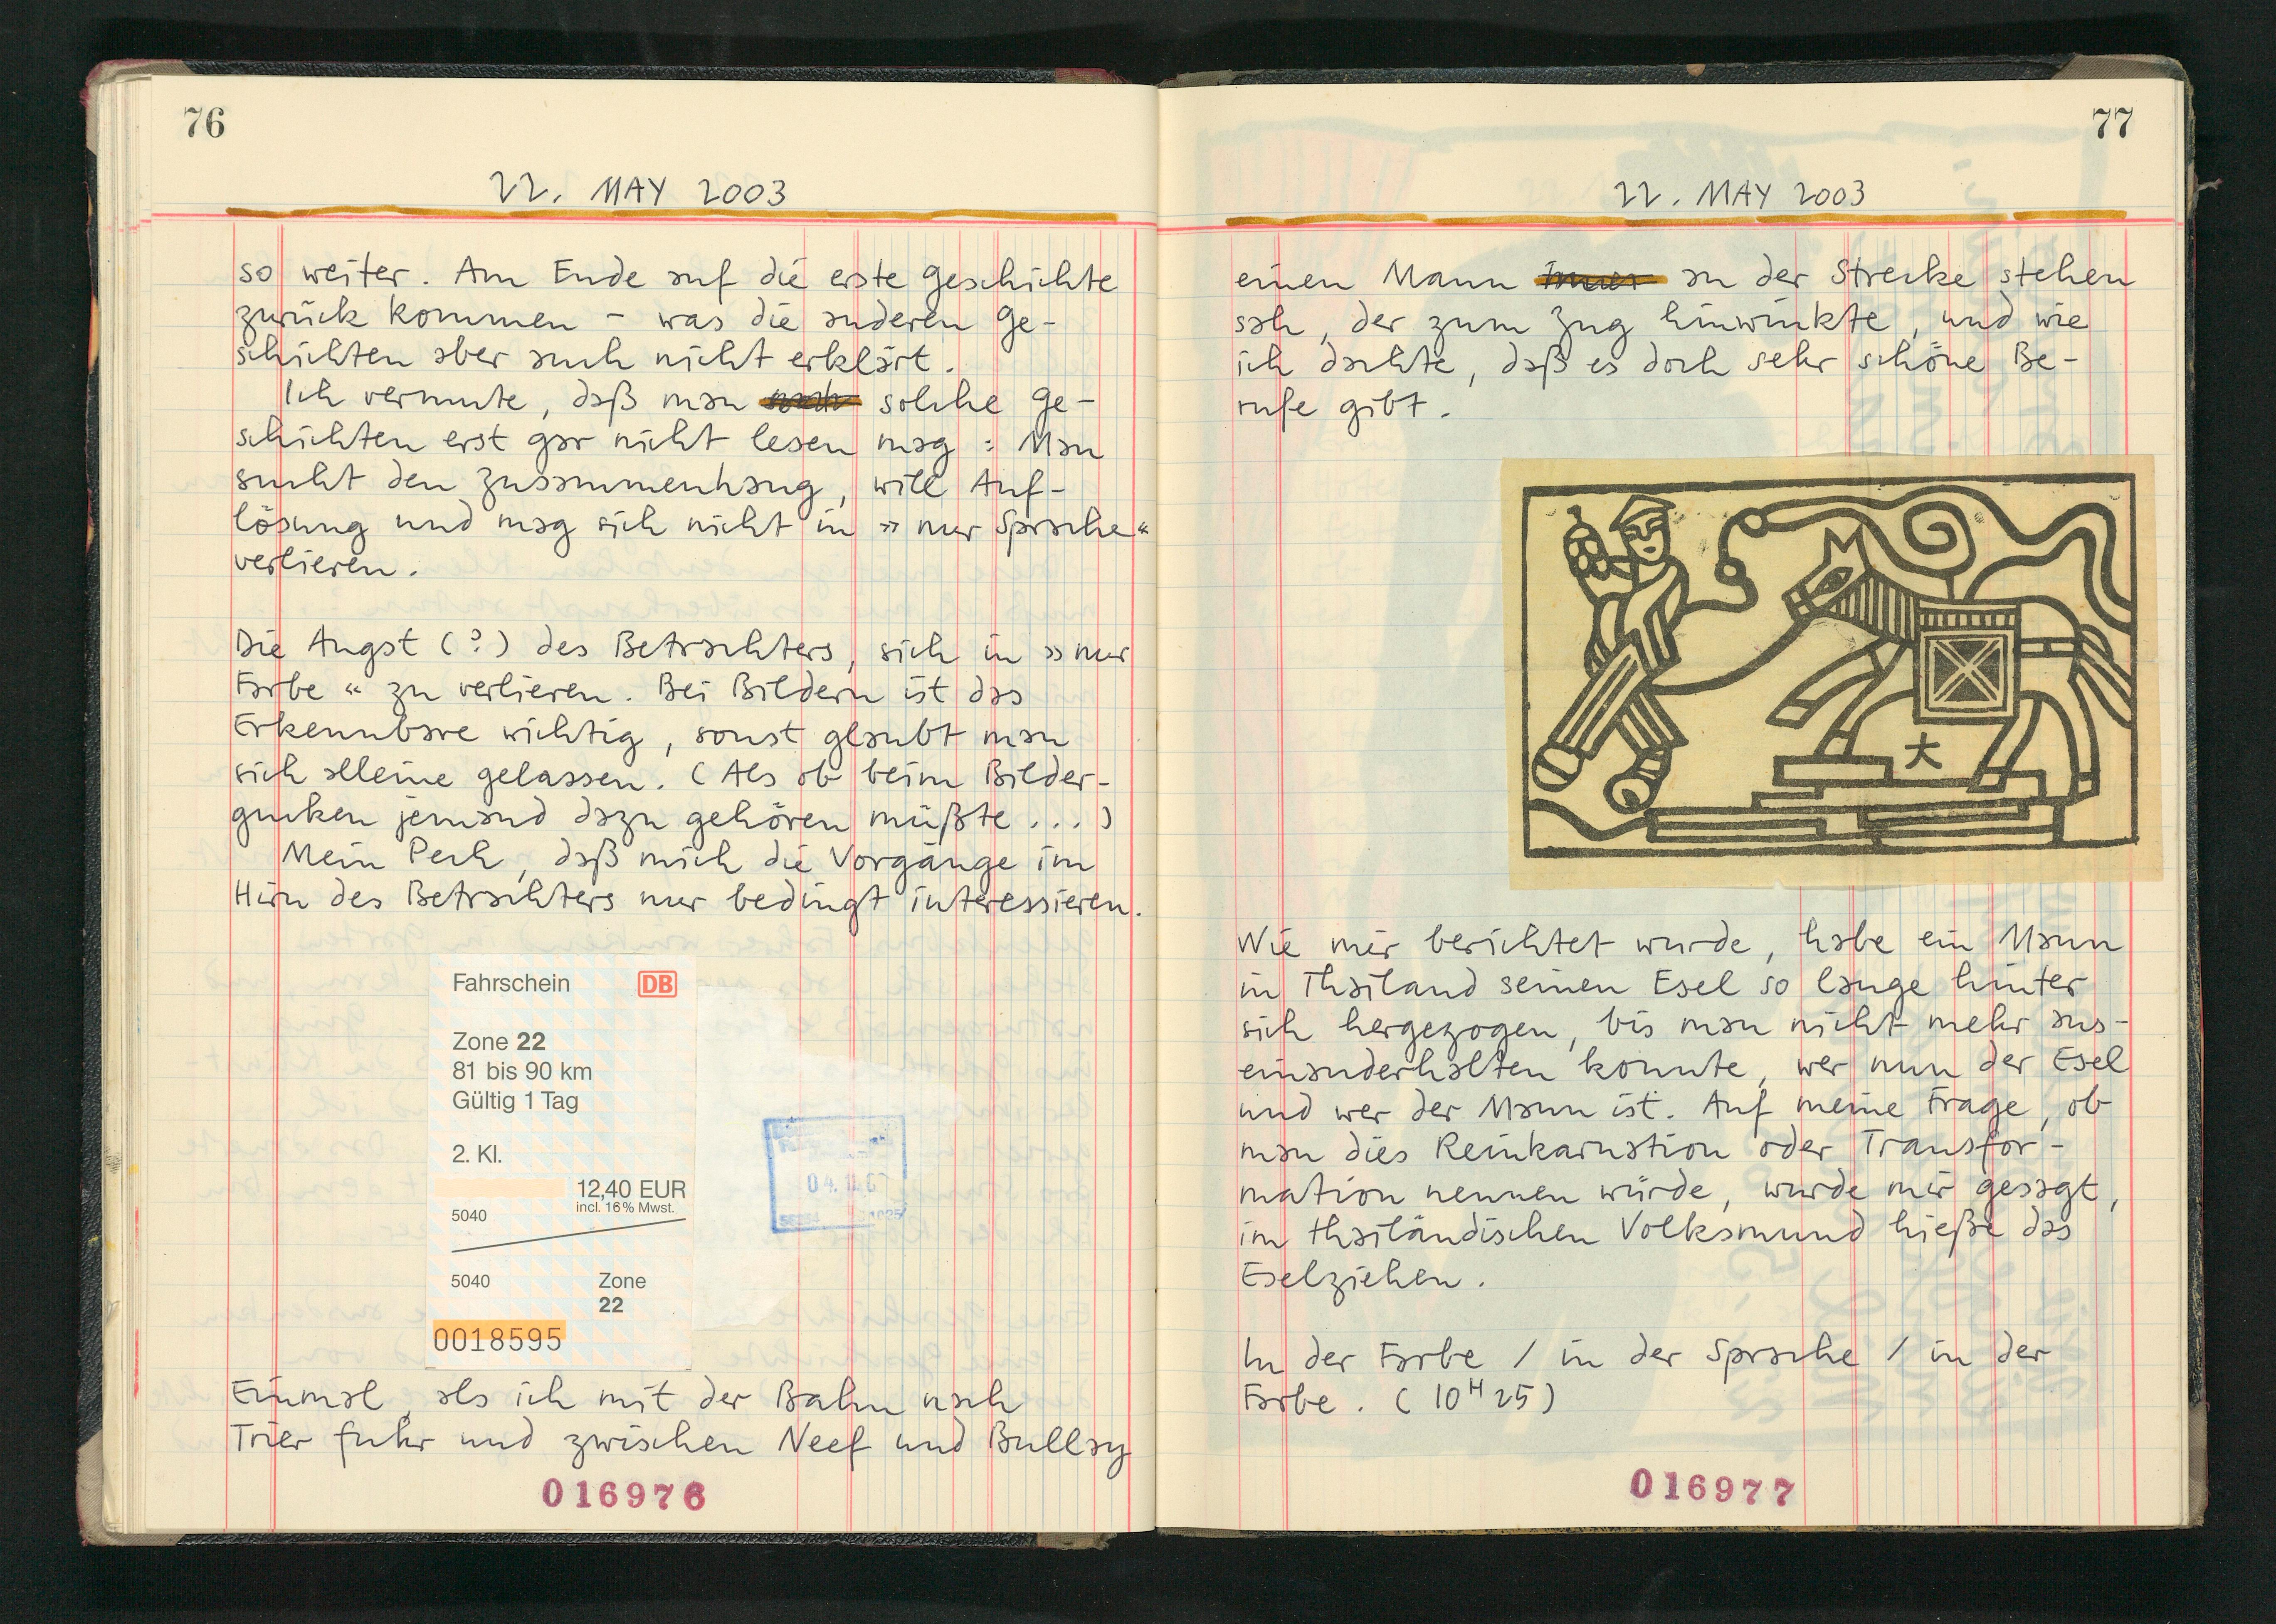 76
22. MAY 2003
so weiter. Am Ende auf die erste Geschichte
zurück kommen – was die anderen Ge-
schichten aber auch nicht erklärt.
Ich vermute, daß man solche Ge-
schichten erst gar nicht lesen mag: Man
sucht den Zusammenhang, will Auf-
lösung und mag sich nicht in »nur Sprache«
verlieren.
Die Angst (?) des Betrachters, sich in »nur
Farbe« zu verlieren. Bei Bildern ist das
Erkennbare wichtig, sonst glaubt man
sich alleine gelassen. (Als ob beim Bilder-
gucken jemand dazu gehören müßte...)
Mein Pech, daß mich die Vorgänge im
Hirn des Betrachters nur bedingt interessieren.
Fahrschein DB
Zone 22
81 bis 90 km
Gültig 1 Tag
2. Kl.
12,40 EUR
incl. 16% Mwst.
5040
5040 Zone
22
0018595
Einmal, als ich mit der Bahn nach
Trier fuhr und zwischen Neef und Bullay
016976
77
22. MAY 2003
einen Mann an der Strecke stehen
sah, der zum Zug hinwinkte, und wie
ich dachte, daß es doch sehr schöne Be-
rufe gibt.
大
Wie mir berichtet wurde, habe ein Mann
in Thailand seinen Esel so lange hinter
sich hergezogen, bis man nicht mehr aus-
einanderhalten konnte, wer nun der Esel
und wer der Mann ist. Auf meine Frage, ob
man dies Reinkarnation oder Transfor-
mation nennen würde, wurde mir gesagt,
im thailändischen Volksmund hieße das
Eselziehen.
In der Farbe / in der Sprache / in der
Farbe. (10H25)
016977